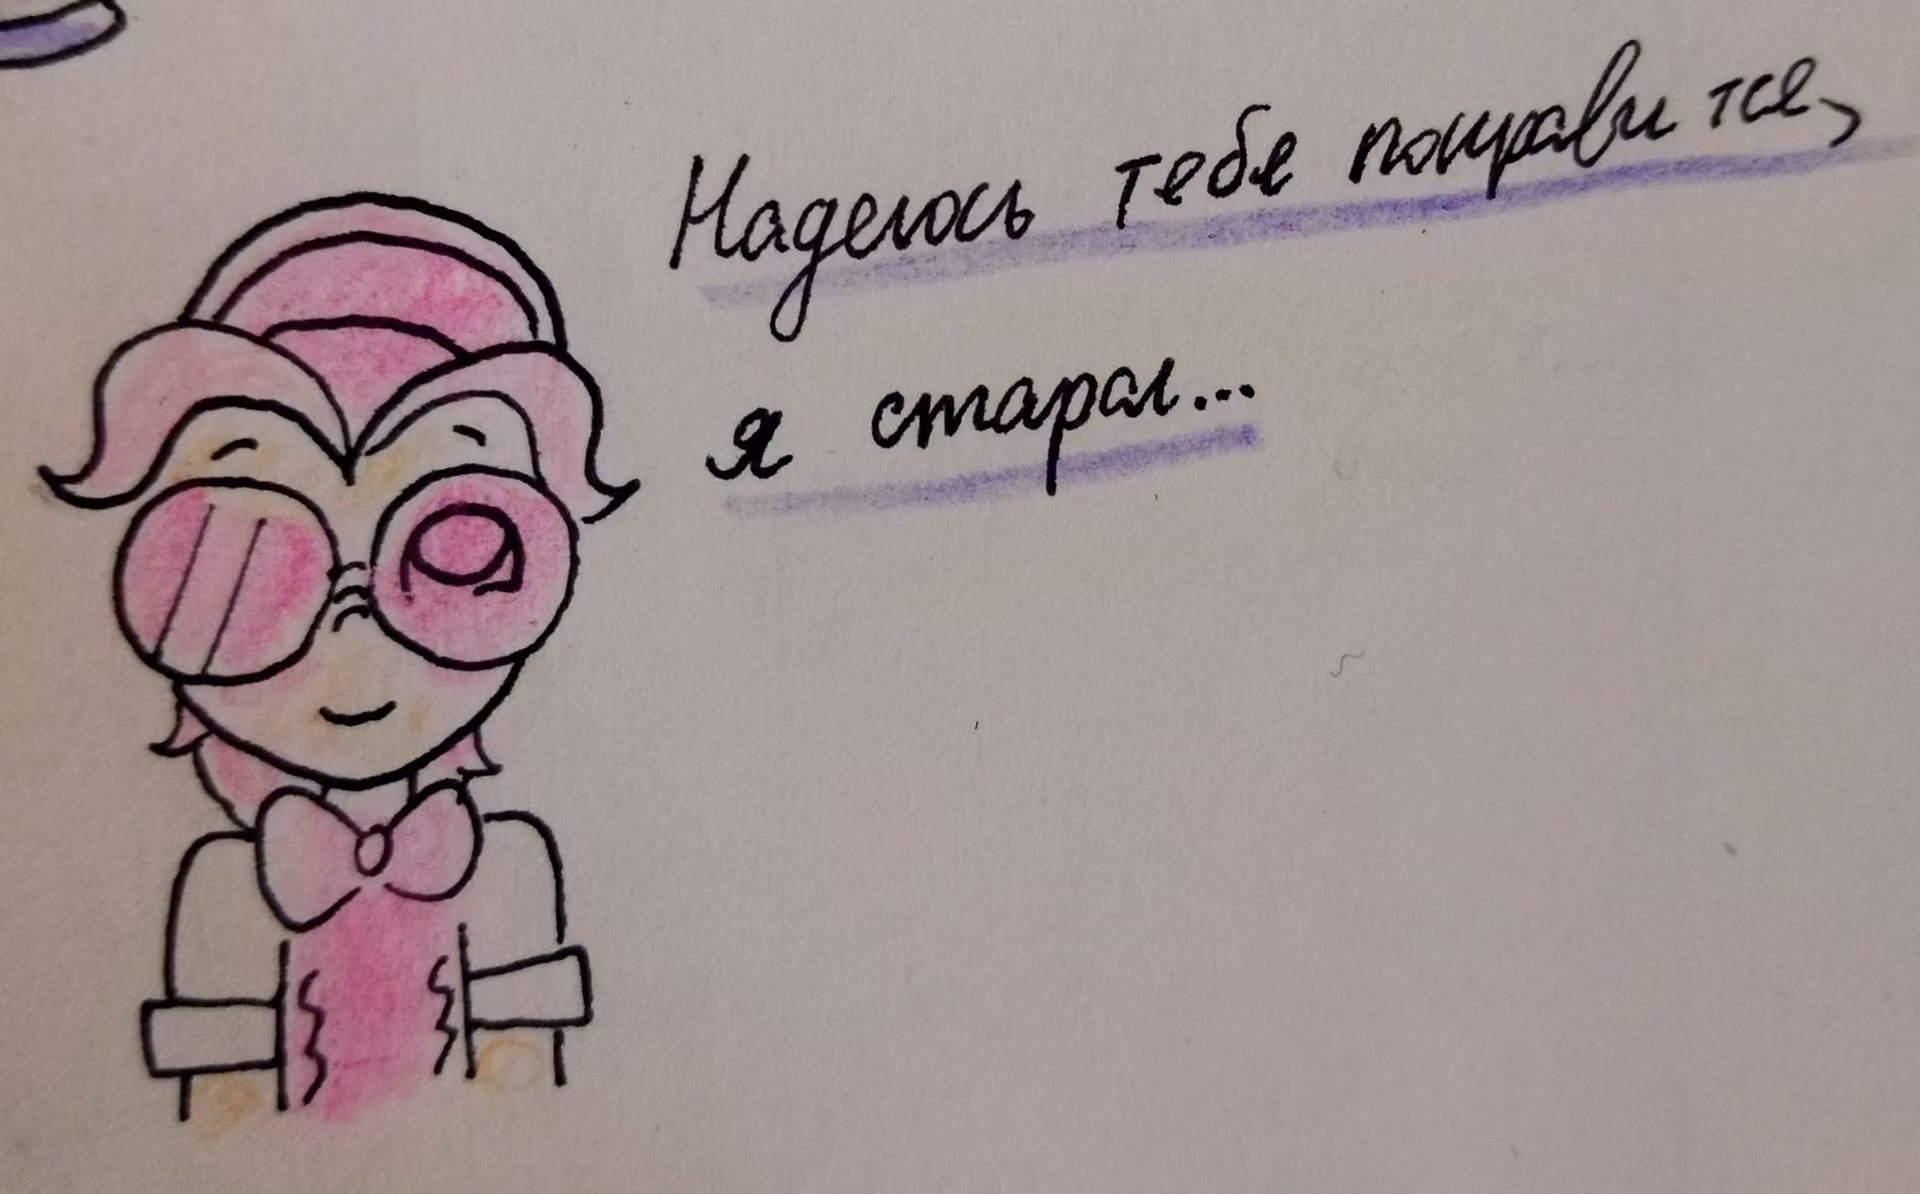 Надеюсь тебе понравится,
я старал...